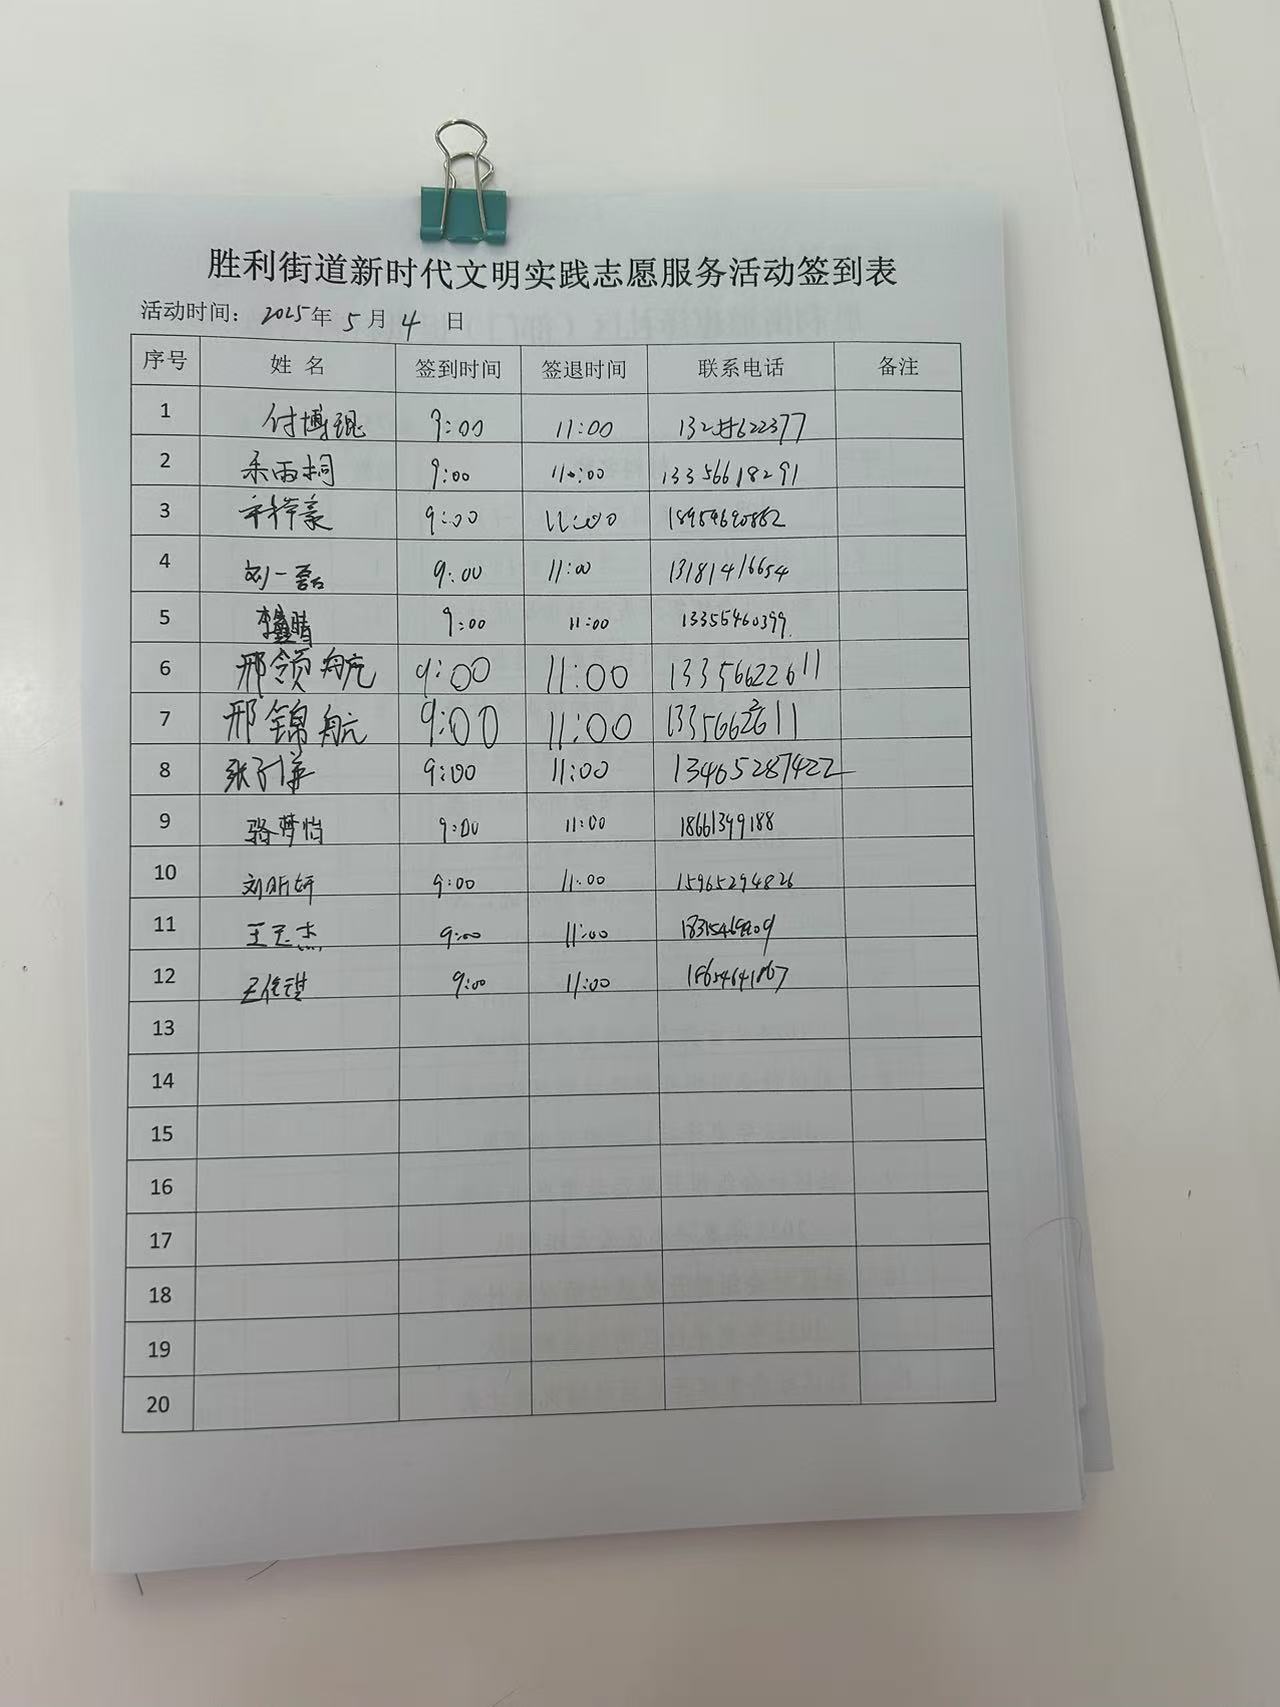 胜利街道新时代文明实践志愿服务活动签到表
活动时间：2025年5月4日
序号 姓名 签到时间 签退时间 联系电话 备注
1 付博琨 9:00 11:00
2 9:00 11:00 13356618291
3 9:00 11:00 18954690862
4 刘一磊 9:00 11:00 13181416654
5 9:00 11:00 13356460399
6 邢领航 9:00 11:00 13356622611
7 邢锦航 9:00 11:00
8 9:00 11:00 13465287422
9 骆梦怡 9:00 11:00 18661399188
10 刘昕妍 9:00 11:00 15965294826
11 9:00 11:00
12 9:00 11:00 18654641867
13
14
15
16
17
18
19
20